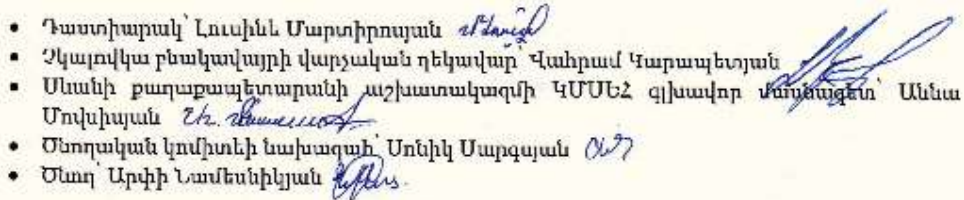 • Դաստիարակ՝ Լուսինե Մարտիրոսյան
• Չկալովկա բնակավայրի վարչական ղեկավար՝ Վահրամ Կարապետյան
• Սևանի քաղաքապետարանի աշխատակազմի ԿՄՍԵՀ գլխավոր մասնագետ՝ Աննա
Մովսիսյան
• Ծնողական կոմիտեի նախագահ՝ Սոնիկ Սարգսյան
• Ծնող՝ Արփի Նամեսնիկյան